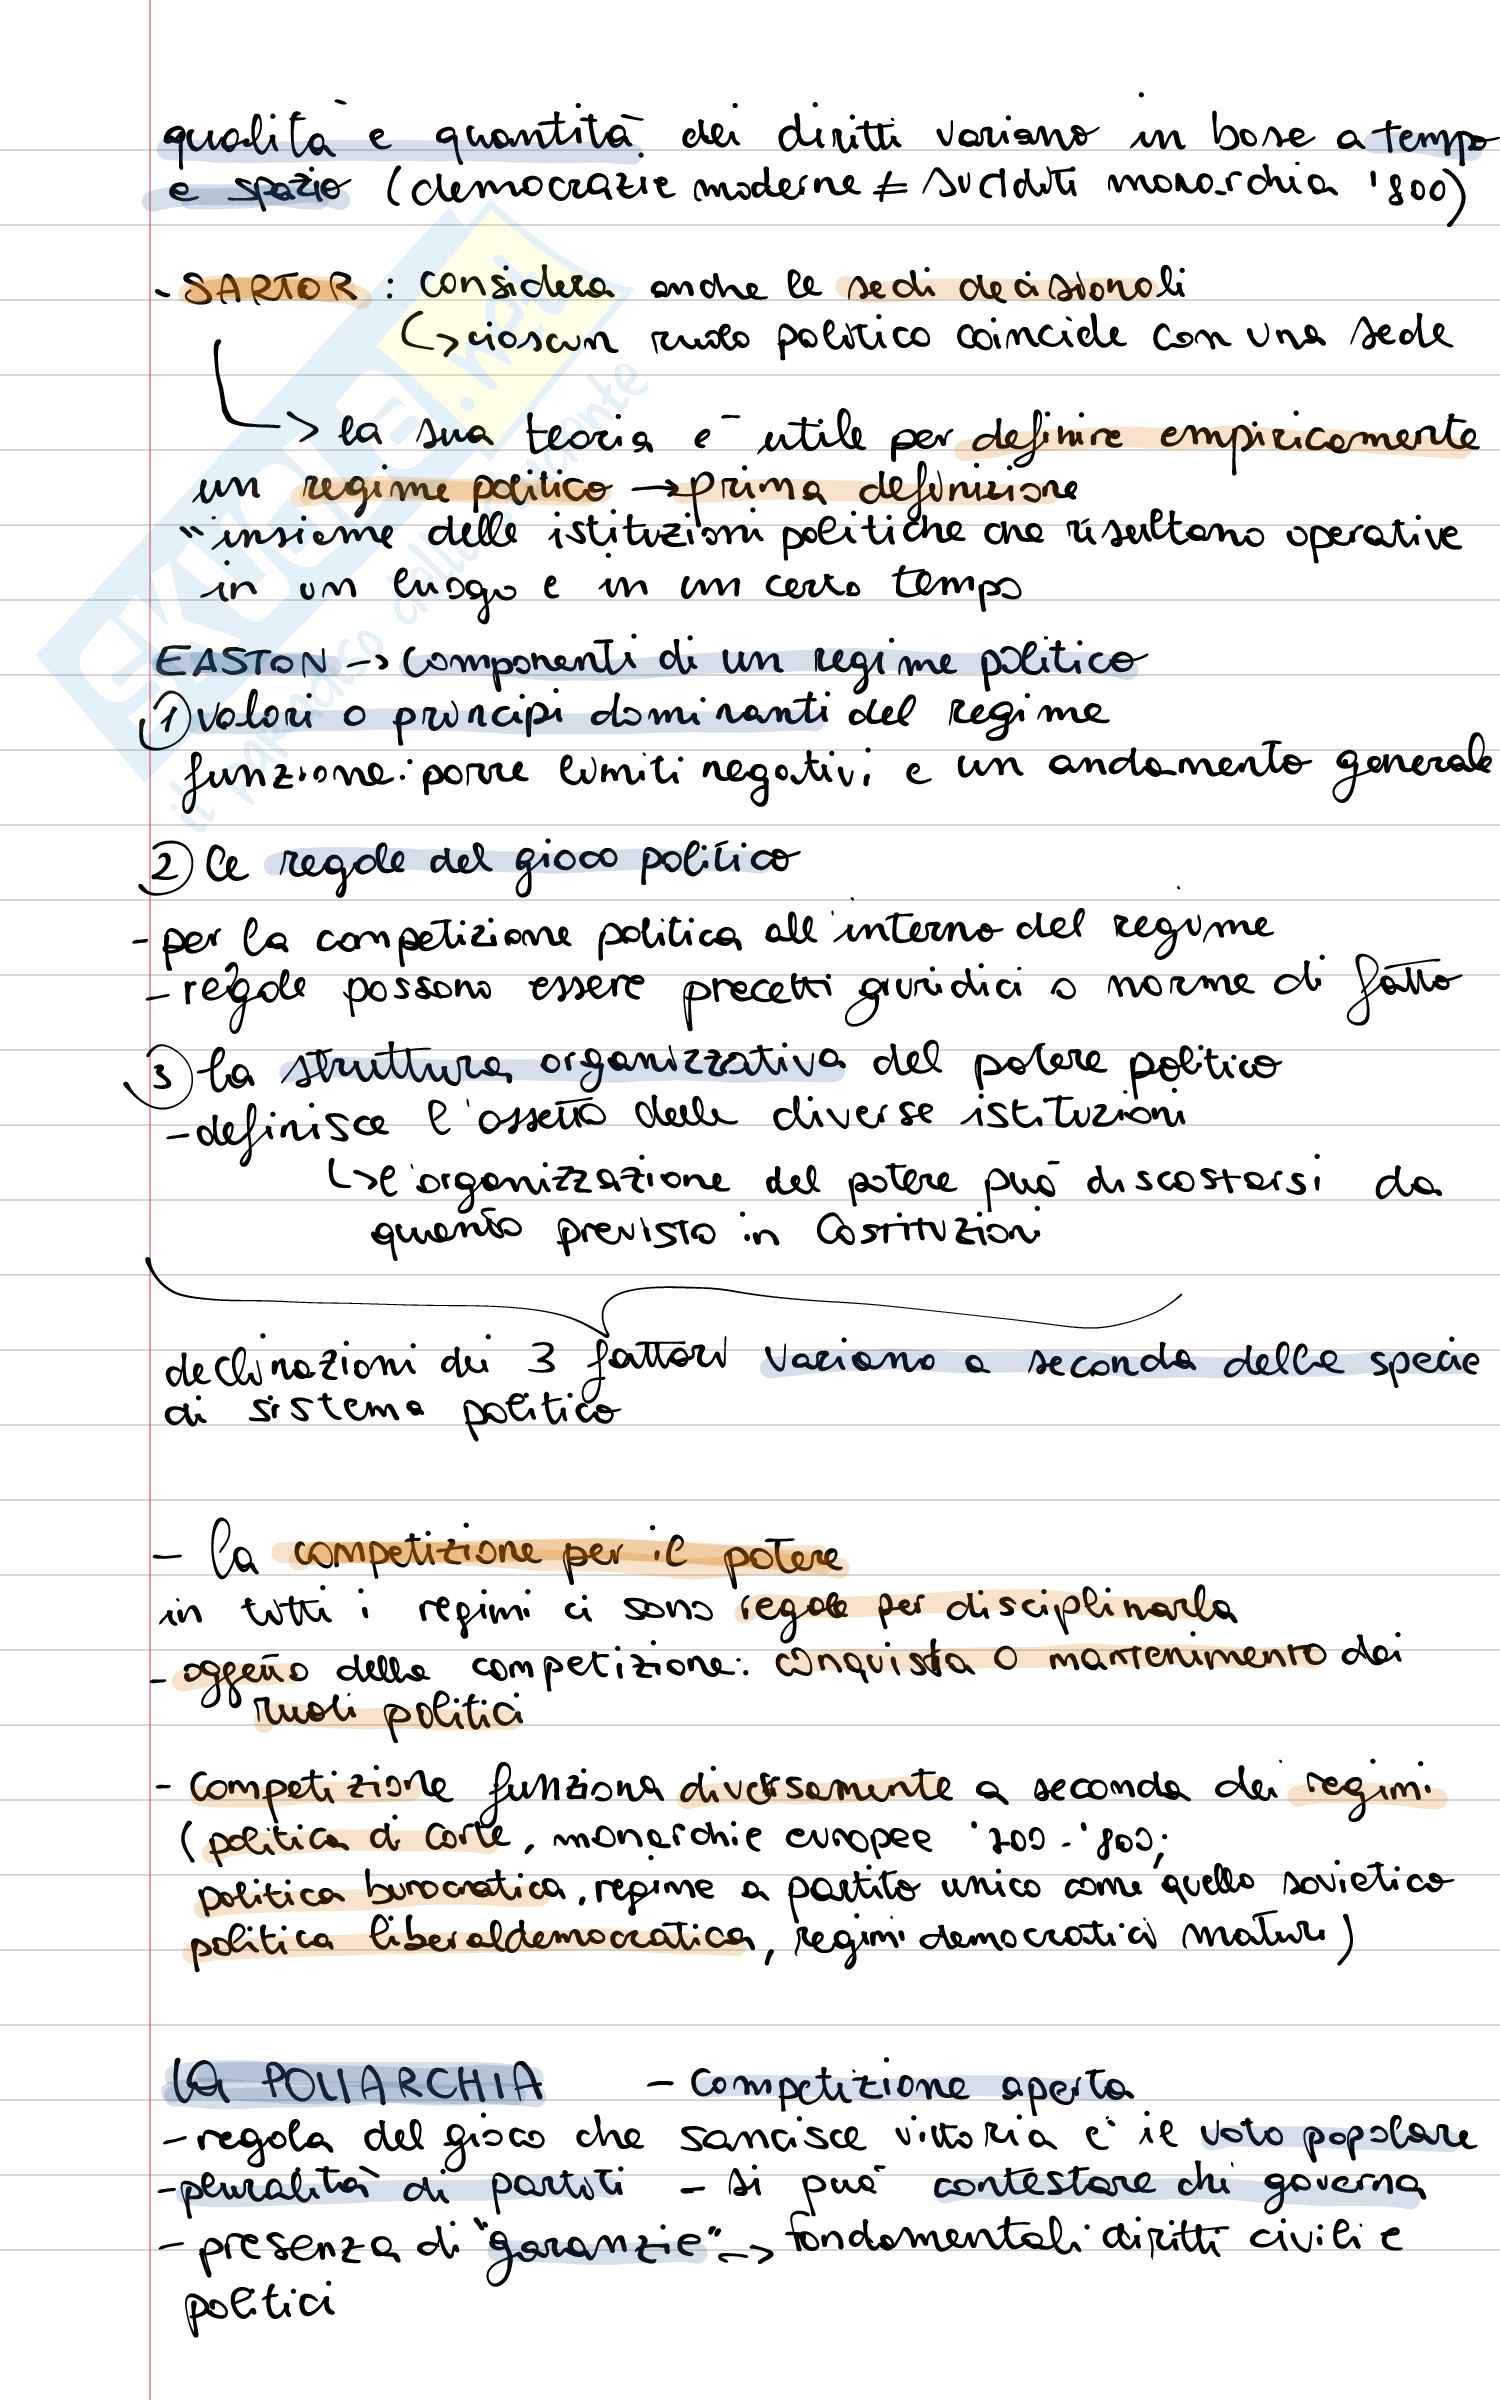 qualità e quantità dei diritti variano in base a tempo
e spazio (democrazie moderne ≠ sudditi monarchia '800)
- SARTOR : considera anche le sedi decisionali
↳ ciascun ruolo politico coincide con una sede
↳ la sua teoria è utile per definire empiricamente
un regime politico → prima definizione
"insieme delle istituzioni politiche che risultano operative
in un luogo e in un certo tempo
EASTON → componenti di un regime politico
1) valori o principi dominanti del regime
funzione: porre limiti negativi e un andamento generale
2) le regole del gioco politico
- per la competizione politica all'interno del regime
- regole possono essere precetti giuridici o norme di fatto
3) la struttura organizzativa del potere politico
- definisce l'assetto delle diverse istituzioni
↳ l'organizzazione del potere può discostarsi da
quanto previsto in Costituzioni
declinazioni dei 3 fattori variano a seconda della specie
di sistema politico
- la competizione per il potere
in tutti i regimi ci sono regole per disciplinarla
- oggetto della competizione: conquista o mantenimento dei
ruoli politici
- competizione funziona diversamente a seconda dei regimi
(politica di corte, monarchie europee '700-'800;
politica burocratica, regime a partito unico come quello sovietico
politica liberaldemocratica, regimi democratici maturi)
la POLIARCHIA - competizione aperta
- regola del gioco che sancisce vittoria è il voto popolare
- pluralità di partiti - si può contestare chi governa
- presenza di "garanzie" → fondamentali diritti civili e
politici
SKUOLA.net
il paradiso dello studente